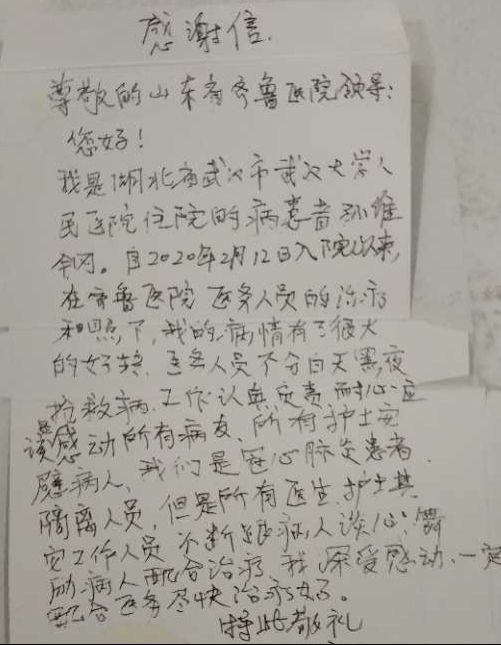 感谢信.
尊敬的山东省齐鲁医院领导:
您好!
我是湖北省武汉市武汉大学人
民医院住院的病患者孙维
自2020年2月12日入院以来,
在齐鲁医院医务人员的治疗
和照下,我的病情有了很大
的好转.医务人员不分白天黑夜
抢救病.工作认真负责耐心.应
该感动所有病友.所有护士安
慰病人,我们是冠心肺炎患者.
隔离人员,但是所有医生.护士其
它工作人员不断跟病人谈心.
励病人配合治疗.我深受感动.一定
配合医务尽快治疗好。
特此敬礼